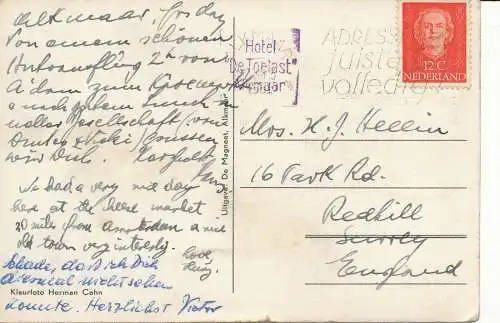 Alkmaar, Freitag
Von einem schönen
Autoausflug 2h von
A'dam zum
nach gutem Lunch in
netter Gesellschaft
grüssen
wir Dich. Herzlichst
We had a very nice day
here at the cheese market
30 miles from Amsterdam a nice
old town very interesting.
Love
Schade, dass ich Dich
diesmal nicht sehen
konnte. Herzlichst Victor
Kleurfoto Herman Cahn
Uitgave: De Magneet, Alkmaar
Hotel
"De Toelast"
Alkmaar
ADRESS
juist
volledig
12 C
NEDERLAND
Mrs. H. J. Hellin
16 Park Rd.
Redhill
Surrey
England